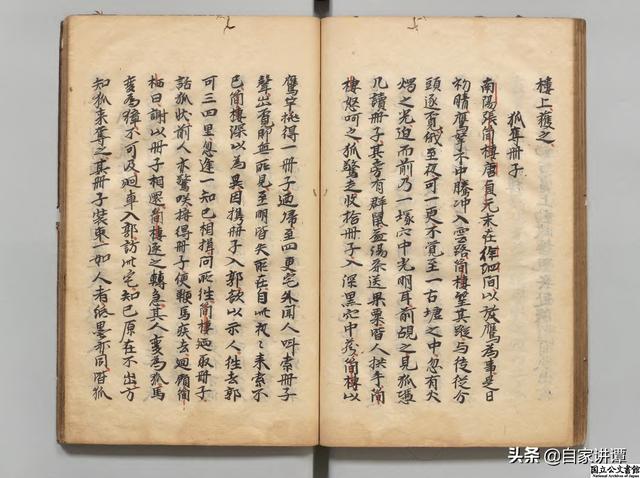 樓上獲之
狐奪册子
南陽張簡棲唐貞元末在徐泗間以放鷹為事是日
初晴鷹擊不中騰冲入雲路簡棲望其蹤与徒從分
頭逐覓俄至夜可一更不覺至一古墟之中忽有火
燭之光迫而前乃一塚穴中光明耳前覘之見狐憑
几讀册子其旁有群鼠益湯茶送果栗皆人拱手簡
棲怒呵之狐驚走收拾册子入深黑穴中藏簡棲以
鷹竿挑得一册子遁歸至四更宅外聞人叫索册子
聲出覓即無所見至明皆失所在自此夜々來索不
已簡棲深以為異因携册子入郭欲以示人往去郭
可三四里忽逢一知已相揖問所往簡棲廼取册子
話狐狀前人亦驚咲接得册子便鞭馬疾去廻顧簡
栖曰謝以册子相還簡棲逐之轉急其人変為狐馬
変為獐不可及廻車入郭訪此宅知已原在不出方
知狐來奪之其册子装束一如人者紙墨亦同皆狐
头条 @自家讲谭
国立公文書館
National Archives of Japan